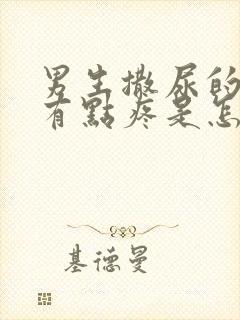 男生撒尿的
有點疼是怎
基德曼